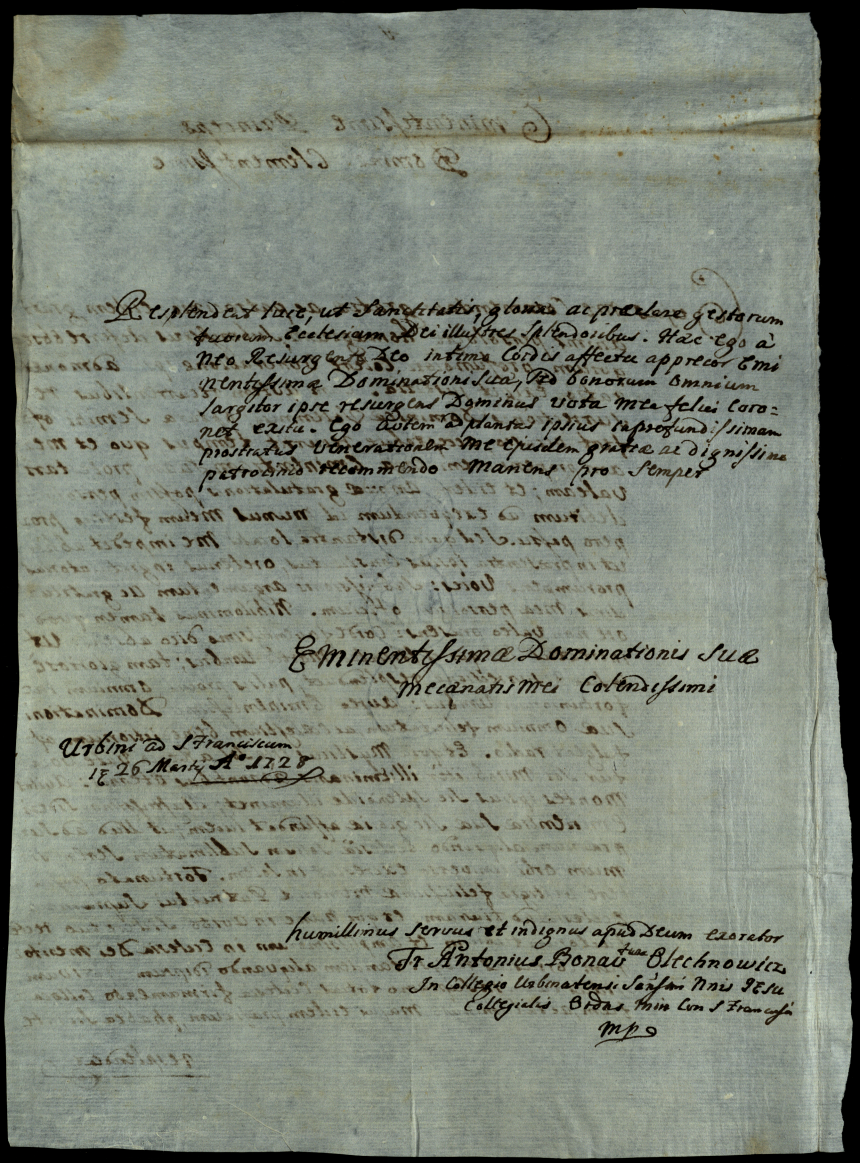 Resplendeat luce, ut Sanctitatis, gloriæ ac præclare gestorum
tuorum Ecclesiam Dei illustres splendoribus. Hæc ego à
Neo Resurgente Deo intimo Cordis affectu apprecor Emi
nentissimæ Dominationi Suæ, sed bonorum omnium
largitor ipse resurgens Dominus vota mea felici coro=
net exitu. Ego autem ad plantas ipsius in profundissimam
prostratus venerationem me ejusdem gratiæ ac dignissimo
patrocinio recommendo Manens pro semper
Eminentissimæ Dominationis Suæ
Mecænatis Mei Colendissimi
Urbini ad S Franciscum
26 Martij Aº 1728
humillimus servus et indignus apud Deum exorator
Fr Antonius Bonavturæ Olechnowicz
In Collegio Urbinatensi Sanssmi Nnis JESU
Collegialis Ordnis Min Con S Francisci
mp